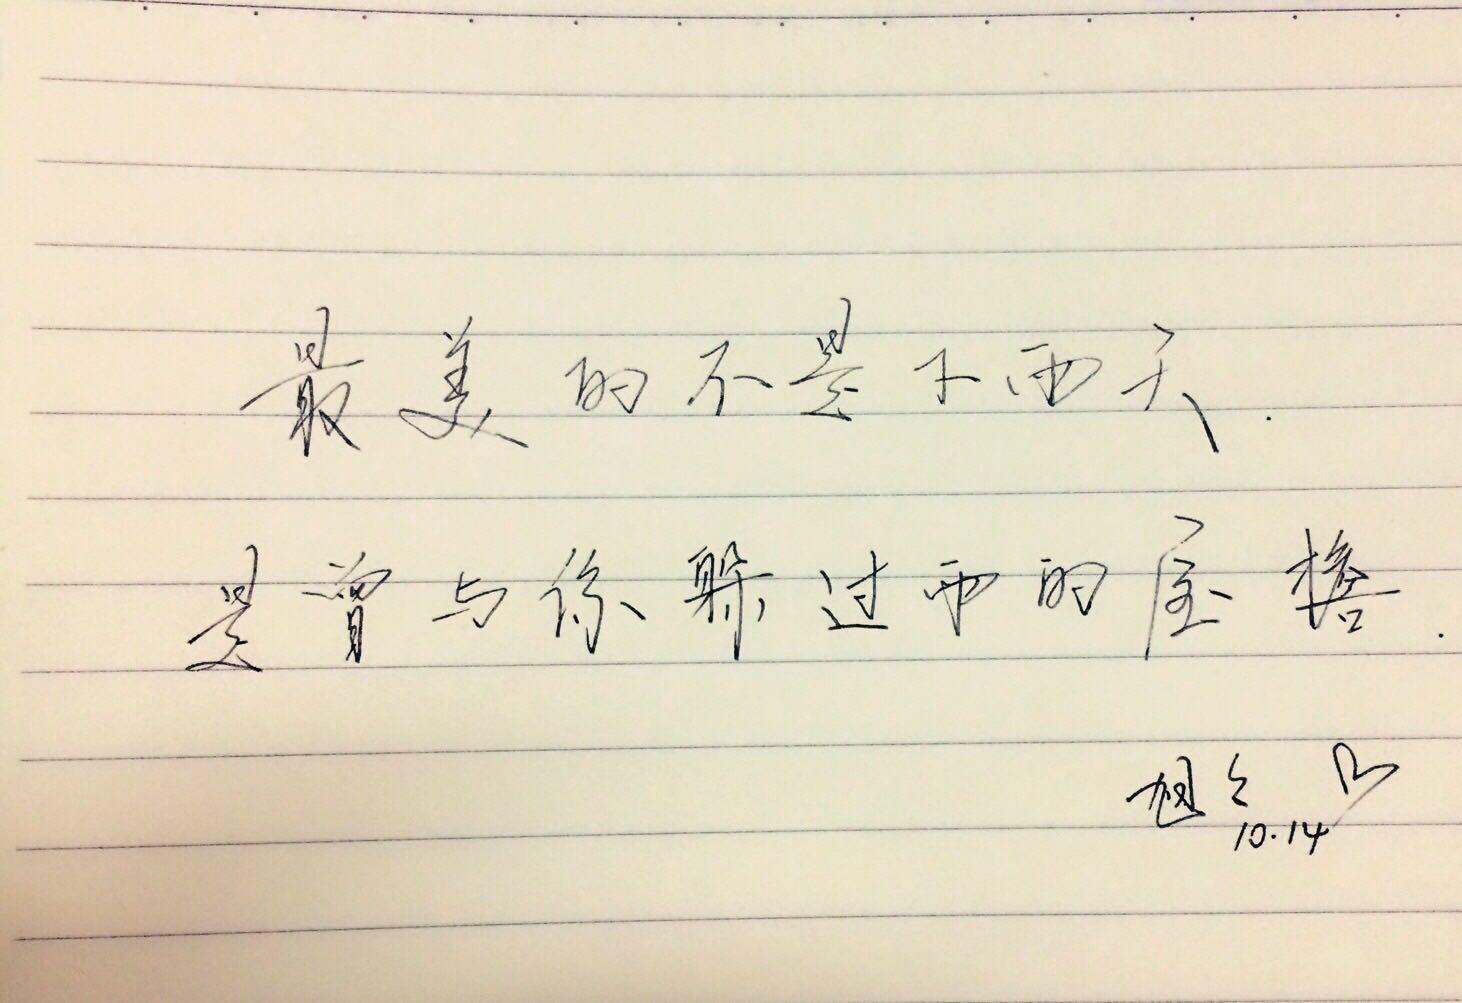 最美的不是下雨天.
是曾与你躲过雨的屋檐.
旭
10.14